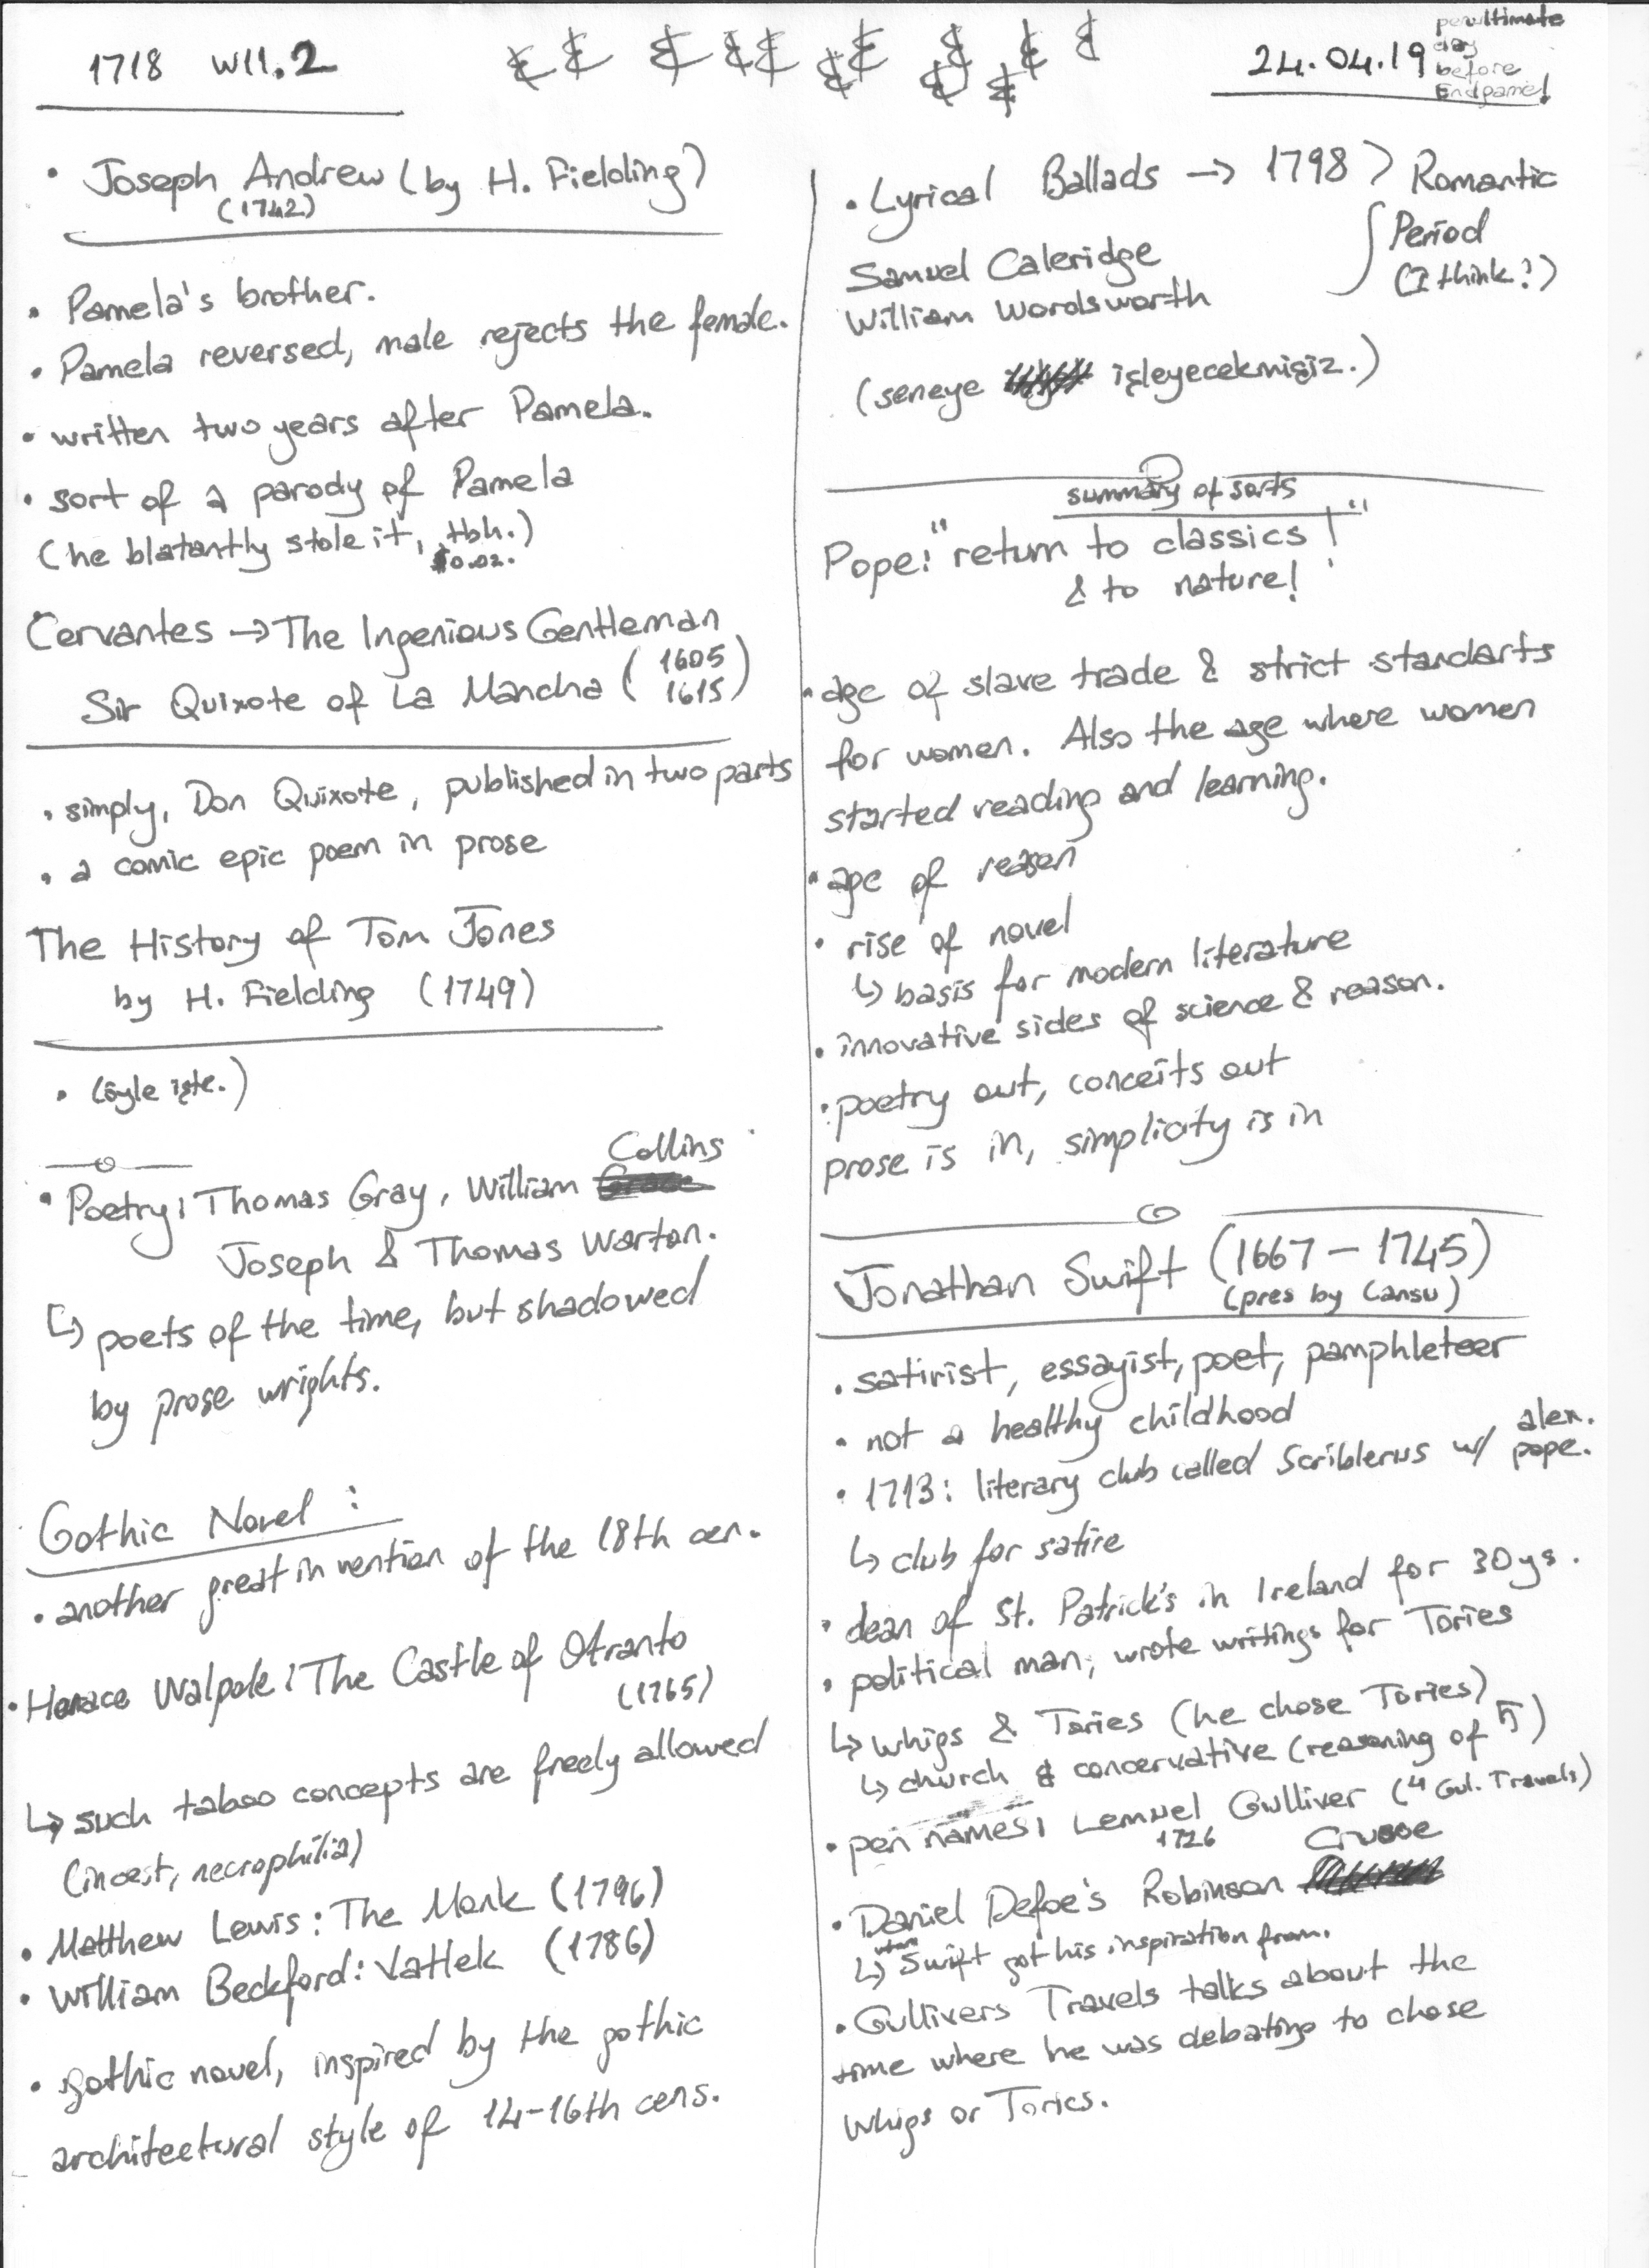 1718 W11.2
24.04.19
penultimate
day
before
Endgame!
• Joseph Andrew (by H. Fielding)
(1742)
• Pamela's brother.
• Pamela reversed, male rejects the female.
• written two years after Pamela.
• sort of a parody of Pamela
(he blatantly stole it, tbh.)
$0.02.
Cervantes → The Ingenious Gentleman
Sir Quixote of La Mancha (1605
1615)
• simply, Don Quixote, published in two parts
• a comic epic poem in prose
The History of Tom Jones
by H. Fielding (1749)
• (öyle işte.)
Collins
• Poetry: Thomas Gray, William
Joseph & Thomas Warton.
↳ poets of the time, but shadowed
by prose wrights.
Gothic Novel:
• another great invention of the 18th cen.
• Horace Walpole: The Castle of Otranto
(1765)
↳ such taboo concepts are freely allowed
(incest, necrophilia)
• Matthew Lewis: The Monk (1796)
• William Beckford: Vathek (1786)
• gothic novel, inspired by the gothic
architectural style of 14-16th cens.
• Lyrical Ballads → 1798 > Romantic
Period
(I think?)
Samuel Caleridge
William Wordsworth
(seneye işleyecekmişiz.)
summary of sorts
Pope: "return to classics!"
& to nature!
• age of slave trade & strict standarts
for women. Also the age where women
started reading and learning.
• age of reason
• rise of novel
↳ basis for modern literature
• innovative sides of science & reason.
• poetry out, conceits out
prose is in, simplicity is in
Jonathan Swift (1667 - 1745)
(pres by Cansu)
• satirist, essayist, poet, pamphleteer
• not a healthy childhood
• 1713: literary club called Scriblerus w/ alex.
pope.
↳ club for satire
• dean of St. Patrick's in Ireland for 30ys.
• political man, wrote writings for Tories
↳ whigs & Tories (he chose Tories)
↳ church & concervative (reasoning of ↰)
• pen names: Lemuel Gulliver (4 Gul. Travels)
1726
Crusoe
• Daniel Defoe's Robinson
↳ where Swift got his inspiration from.
• Gullivers Travels talks about the
time where he was debating to chose
Whigs or Tories.